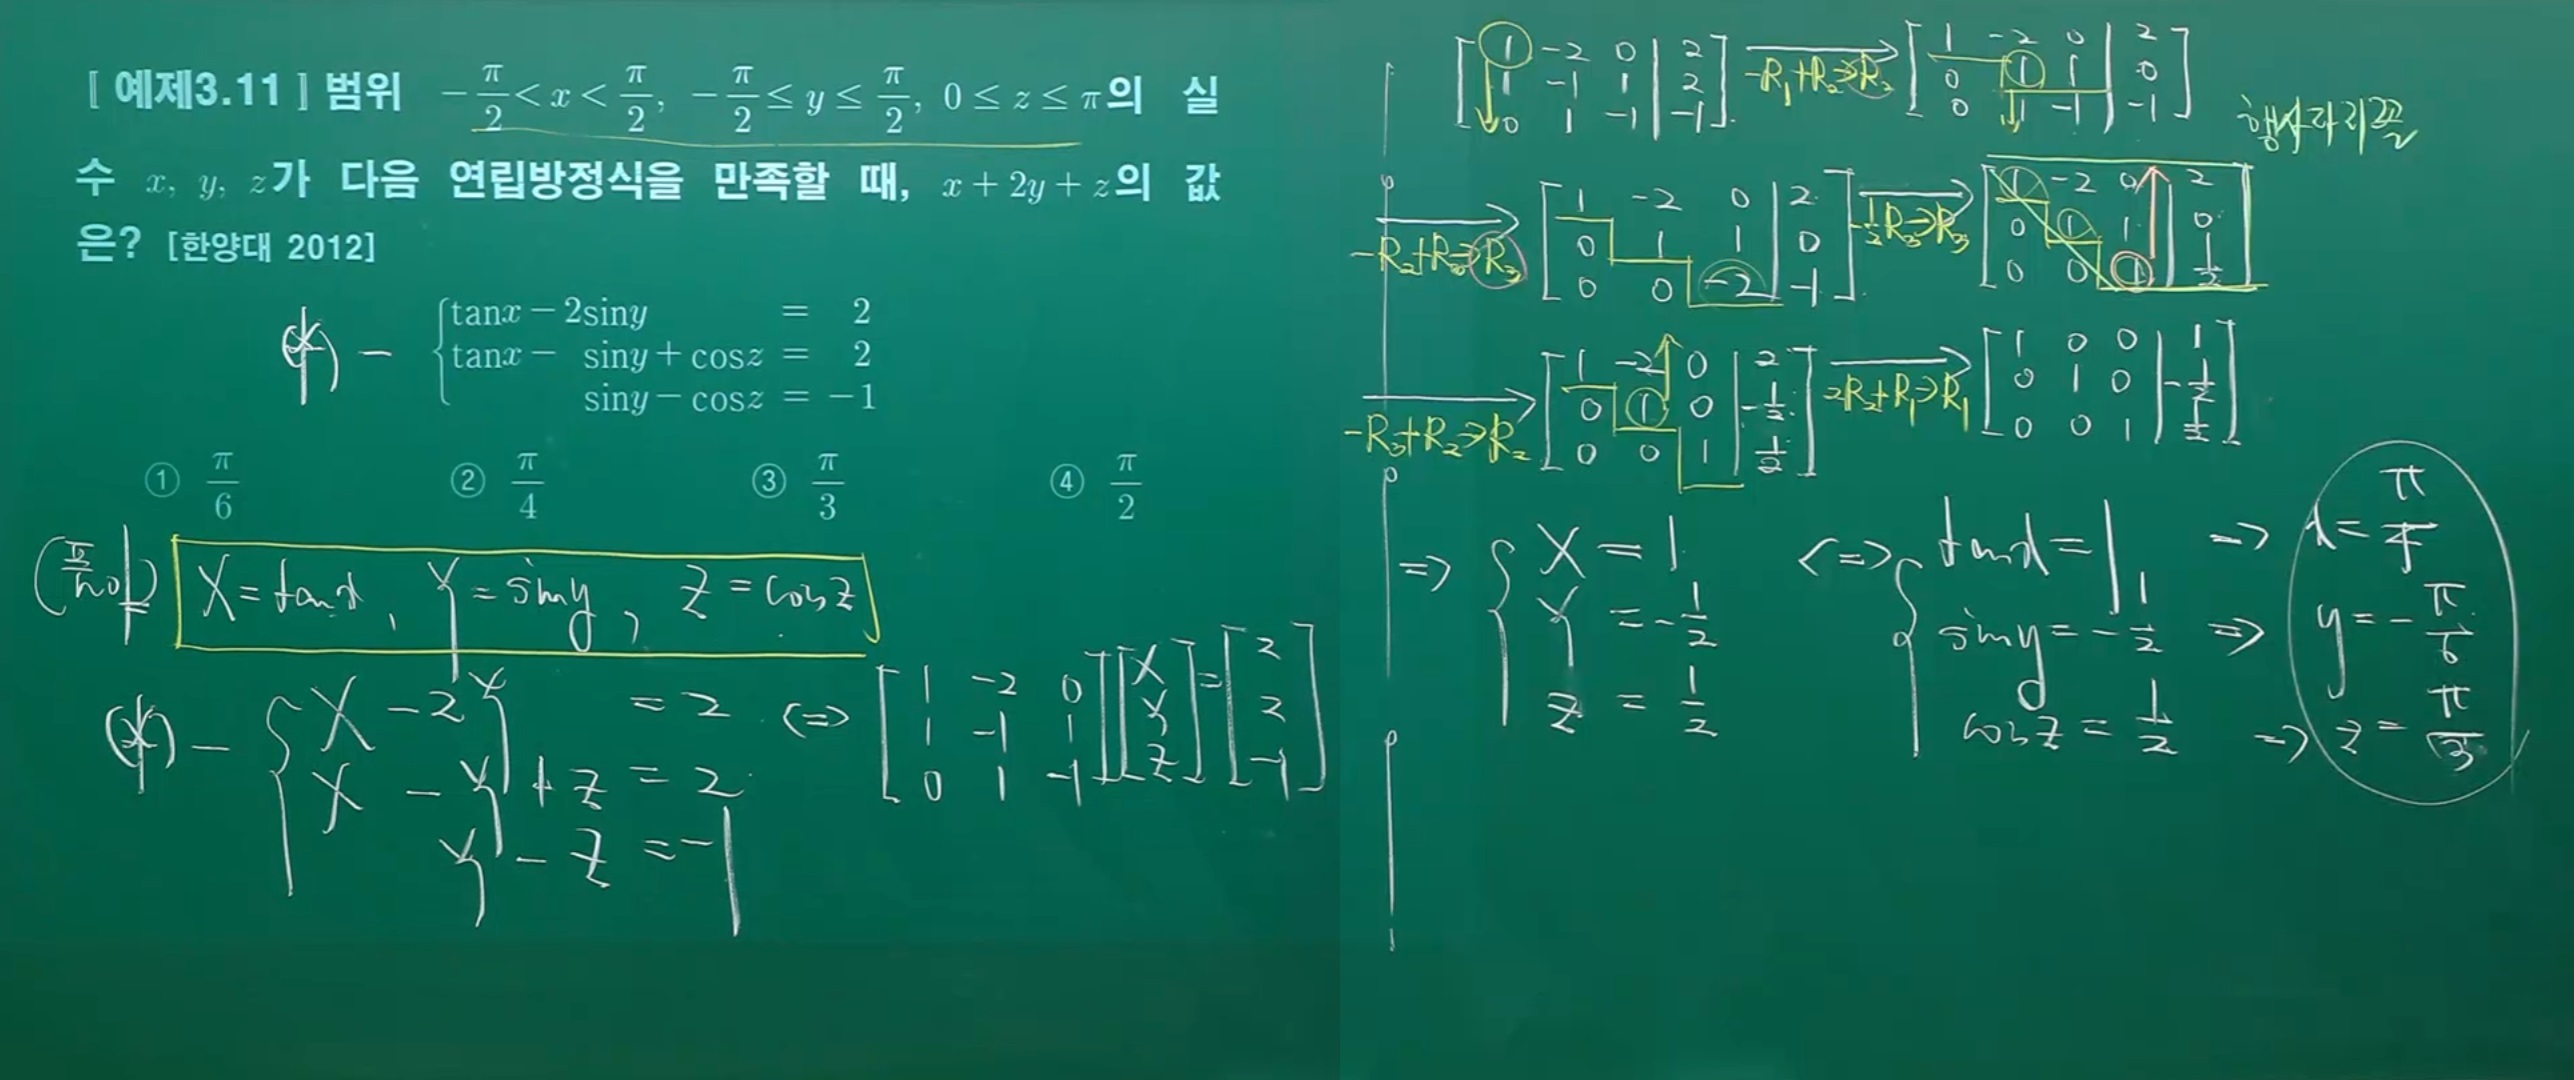 [예제3.11] 범위 -π/2 < x < π/2, -π/2 ≤ y ≤ π/2, 0 ≤ z ≤ π의 실
수 x, y, z가 다음 연립방정식을 만족할 때, x + 2y + z의 값
은? [한양대 2012]
(*) - { tanx - 2siny = 2
tanx - siny + cosz = 2
siny - cosz = -1
① π/6 ② π/4 ③ π/3 ④ π/2
(풀이) X = tanx, Y = siny, Z = cosz
(*) - { X - 2Y = 2
X - Y + Z = 2
Y - Z = -1
⇔ [1 -2 0; 1 -1 1; 0 1 -1] [X; Y; Z] = [2; 2; -1]
[1 -2 0 | 2; 1 -1 1 | 2; 0 1 -1 | -1] -R₁+R₂→R₂ [1 -2 0 | 2; 0 1 1 | 0; 0 1 -1 | -1]
행사다리꼴
-R₂+R₃→R₃ [1 -2 0 | 2; 0 1 1 | 0; 0 0 -2 | -1] -1/2R₃→R₃ [1 -2 0 | 2; 0 1 1 | 0; 0 0 1 | 1/2]
-R₃+R₂→R₂ [1 -2 0 | 2; 0 1 0 | -1/2; 0 0 1 | 1/2] 2R₂+R₁→R₁ [1 0 0 | 1; 0 1 0 | -1/2; 0 0 1 | 1/2]
⇒ { X = 1 ⇔ { tanx = 1 ⇒ x = π/4
Y = -1/2 siny = -1/2 ⇒ y = -π/6
Z = 1/2 cosz = 1/2 ⇒ z = π/3